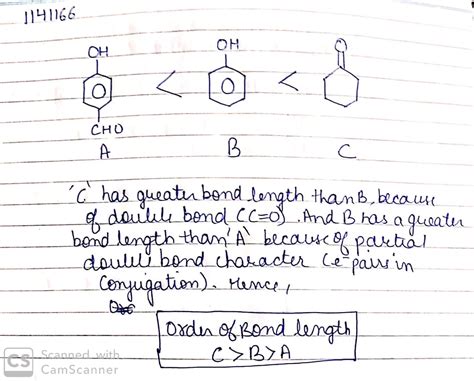 1141166
OH
OH
O
< <
CHO
A B C
'C' has greater bond length than B, because
of double bond (C=O). And B has a greater
bond length than 'A' because of partial
double bond character (e⁻ pairs in
conjugation). Hence,
Order of Bond length
C>B>A
CS Scanned with
CamScanner